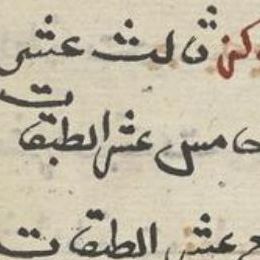 ثالث عشر
خامس عشر الطبقات
عشر الطبقات